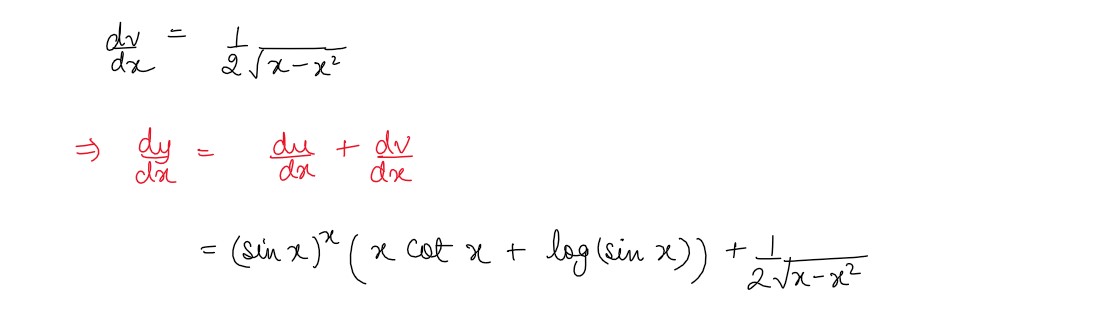 dv/dx = 1/(2√(x-x²))
⇒ dy/dx = du/dx + dv/dx
= (sin x)ˣ (x cot x + log(sin x)) + 1/(2√(x-x²))